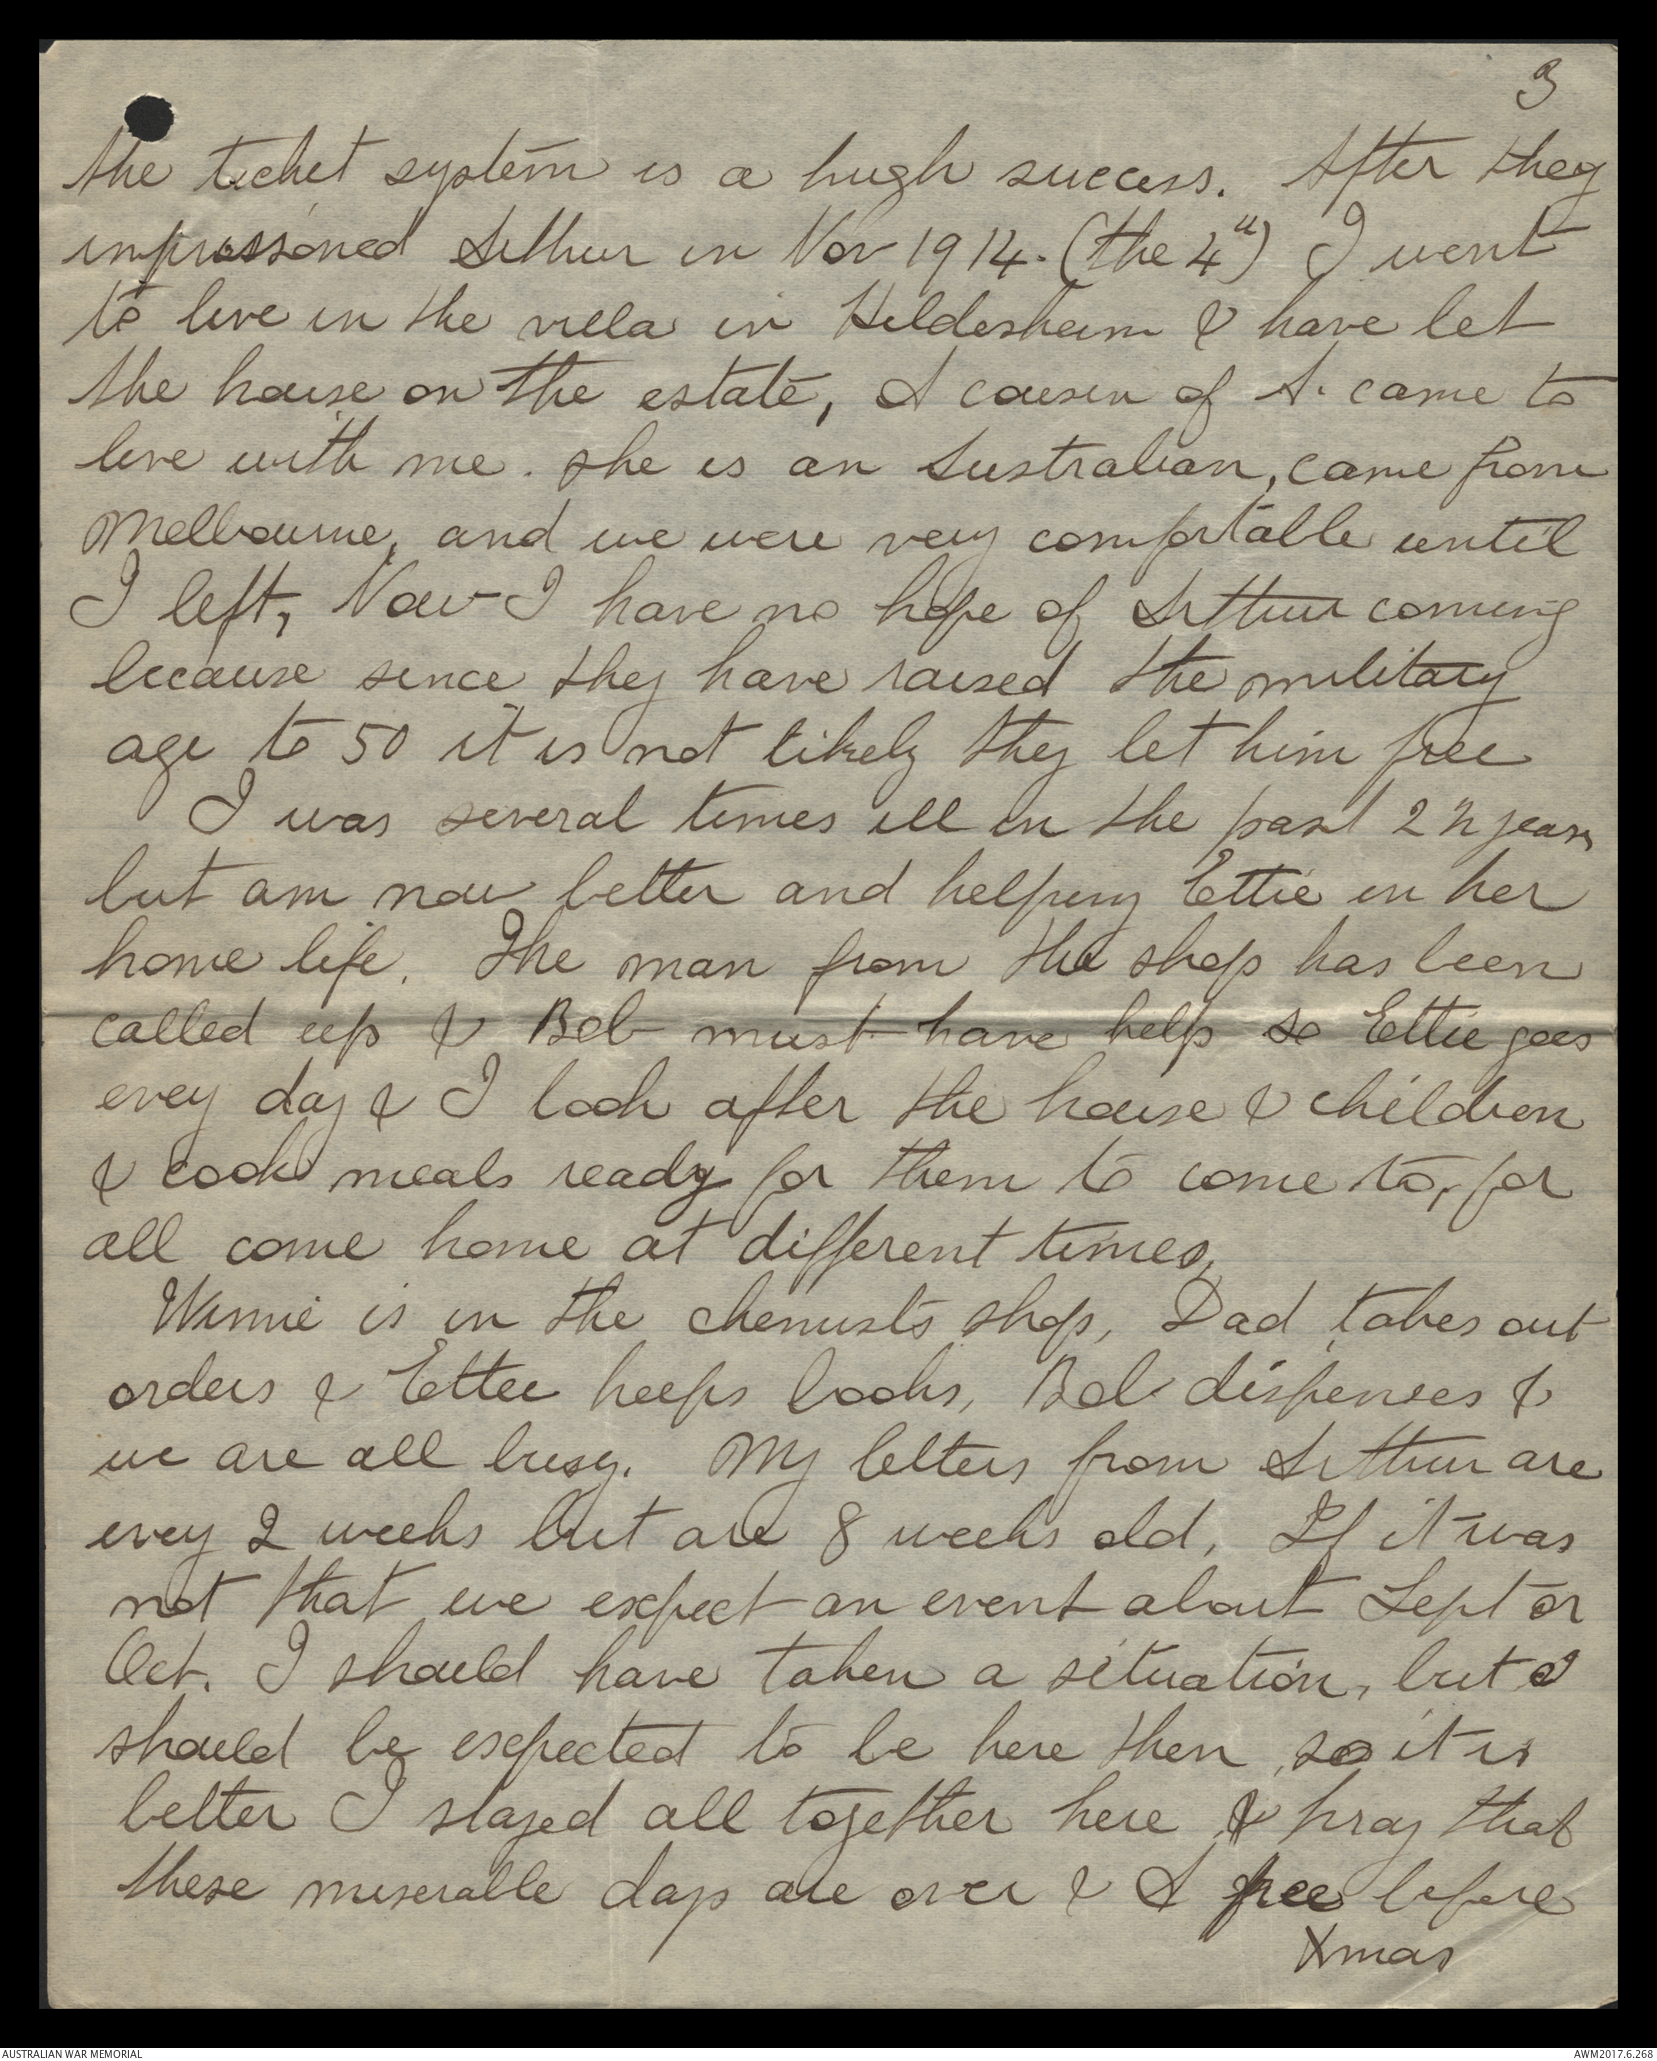 3
the ticket system is a hugh success. After they
imprissoned Arthur in Nov 1914. (the 4th) I went
to live in the villa in Hildesheim & have let
the house on the estate, A cousin of A. came to
live with me. she is an Australian, came from
Melbourne, and we were very comfortable until
I left, Now I have no hope of Arthur coming
because since they have raised the military
age to 50 it is not likely they let him free
I was several times ill in the past 2½ years
but am now better and helping Ettie in her
home life. The man from the shop has been
called up & Bob must have help so Ettie goes
evey day & I look after the house & children
& cook meals ready for them to come to, for
all come home at different times,
Winnie is in the chemists shop, Dad takes out
orders & Ettie keeps books, Bob dispenses &
we are all busy. My letters from Arthur are
evey 2 weeks but are 8 weeks old, If it was
not that we expect an event about Sept or
Oct. I should have taken a situation, but I
should be expected to be here then, so it is
better I stayed all together here & pray that
these miserable days are over & A free before
Xmas
AUSTRALIAN WAR MEMORIAL
AWM2017.6.268